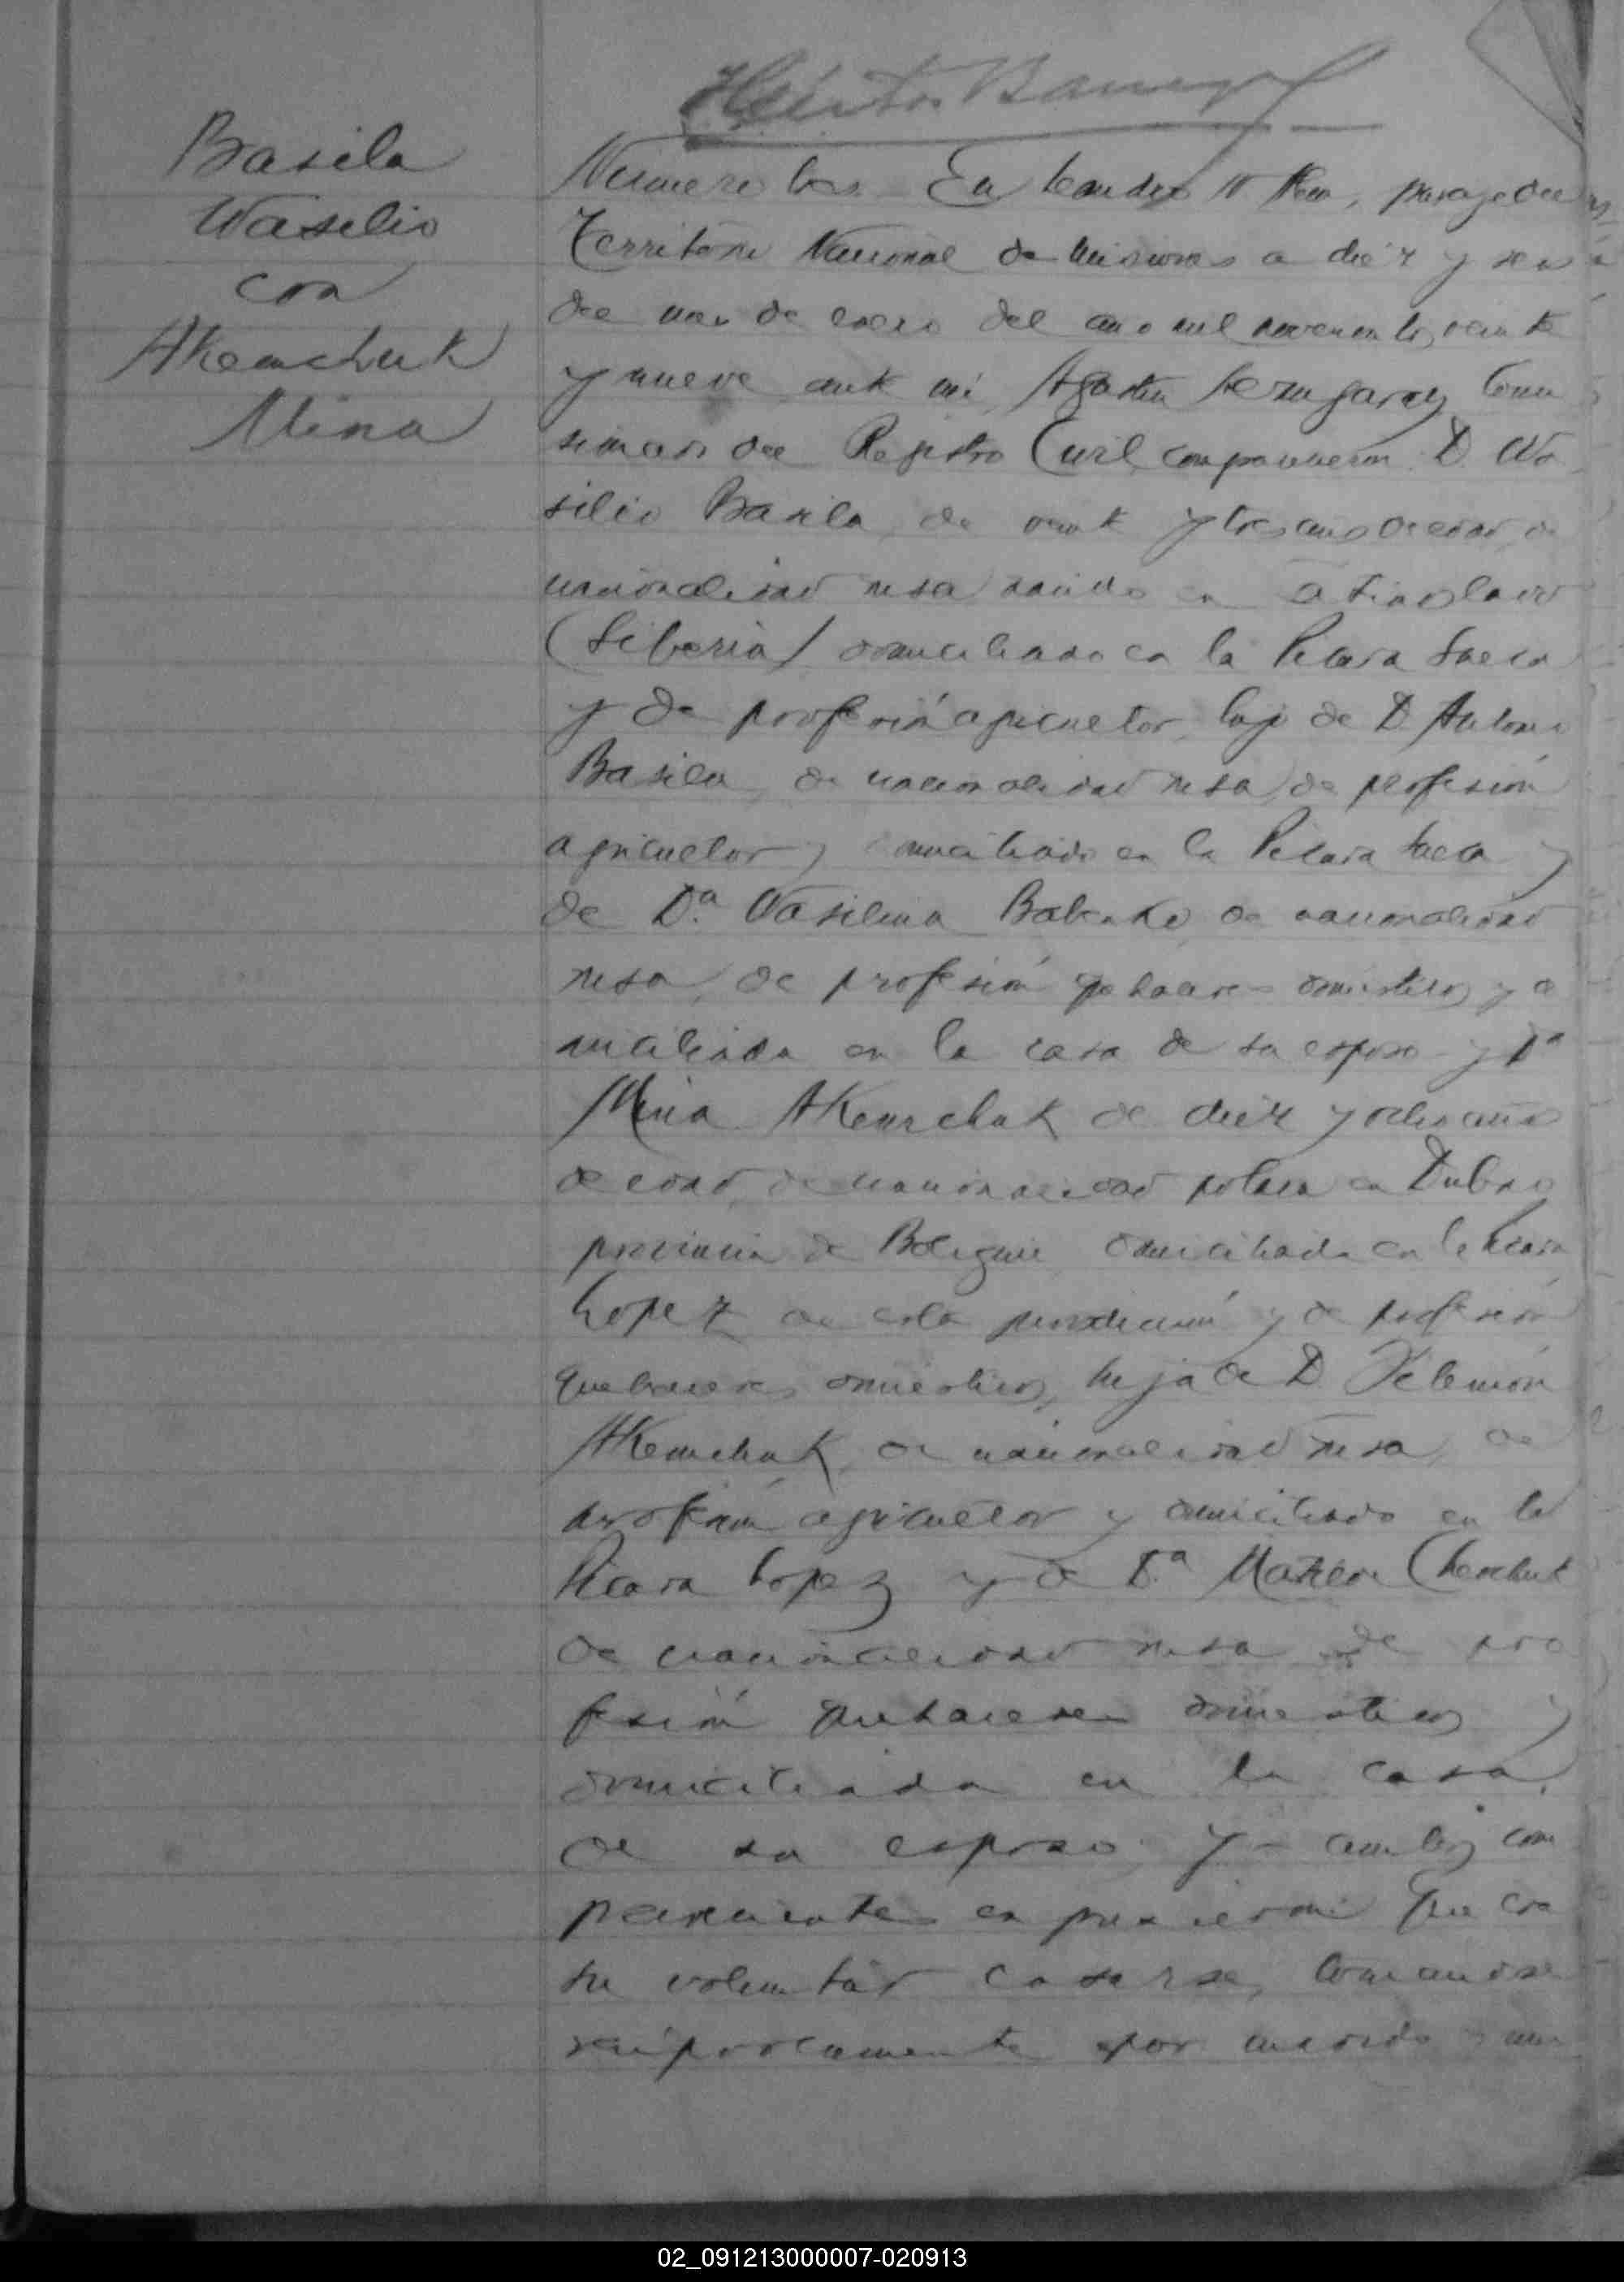 Basila
Wasilio
con
Akemchuk
Mina
Numero tres En
Territorio Nacional de Misiones a diez y seis
del mes de enero del año mil novecientos veinte
y nueve ante mi, Agustin Comi
sionado del Registro Civil, comparecieron D. Wa
silio Basila, de veinte y tres años de edad, de
nacionalidad rusa nacido en
(Siberia) domiciliado en la Picada Sueca
y de profesión agricultor, hijo de D. Antonio
Basila, de nacionalidad rusa, de profesión
agricultor, domiciliado en la Picada Sueca y
de Da. Wasilina de nacionalidad
rusa, de profesión quehaceres domésticos y do
miciliada en la casa de su esposo y Da
Mina Akemchuk de diez y ocho años
de edad, de nacionalidad polaca en Dubno
provincia de domiciliada en la Picada
Lopez de esta jurisdicción y de profesión
quehaceres domésticos, hija de D. Filemón
Akemchuk, de nacionalidad rusa, de
profesión agricultor y domiciliado en la
Picada Lopez y de Da
de nacionalidad rusa de pro
fesión quehaceres domesticos y
domiciliada en la casa
de su esposo. Y ambos com
parecientes expusieron que era
su voluntad casarse, tomandose
reciprocamente por marido y mu
02_091213000007-020913